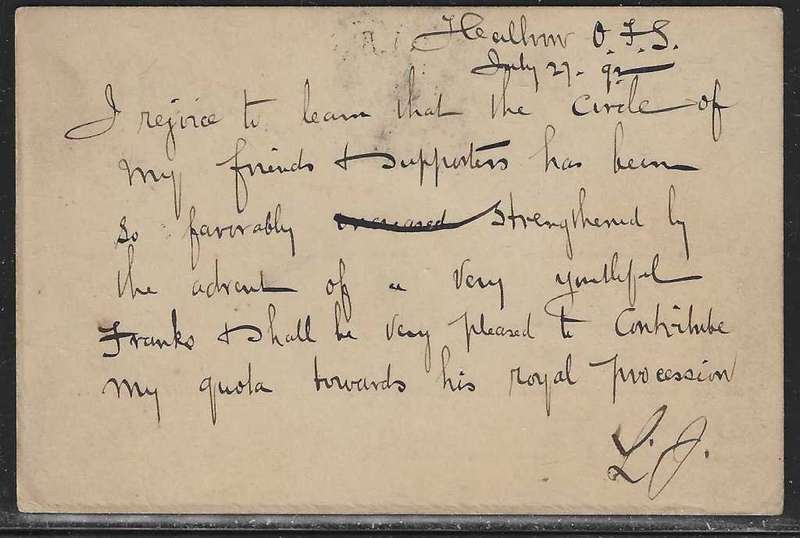 Heilbron O.F.S.
July 27. 92
I rejoice to learn that the circle of
my friends & supporters has been
so favorably increased strengthened by
the advent of a very youthful
Franks & shall be very pleased to contribute
my quota towards his royal procession
L. J.